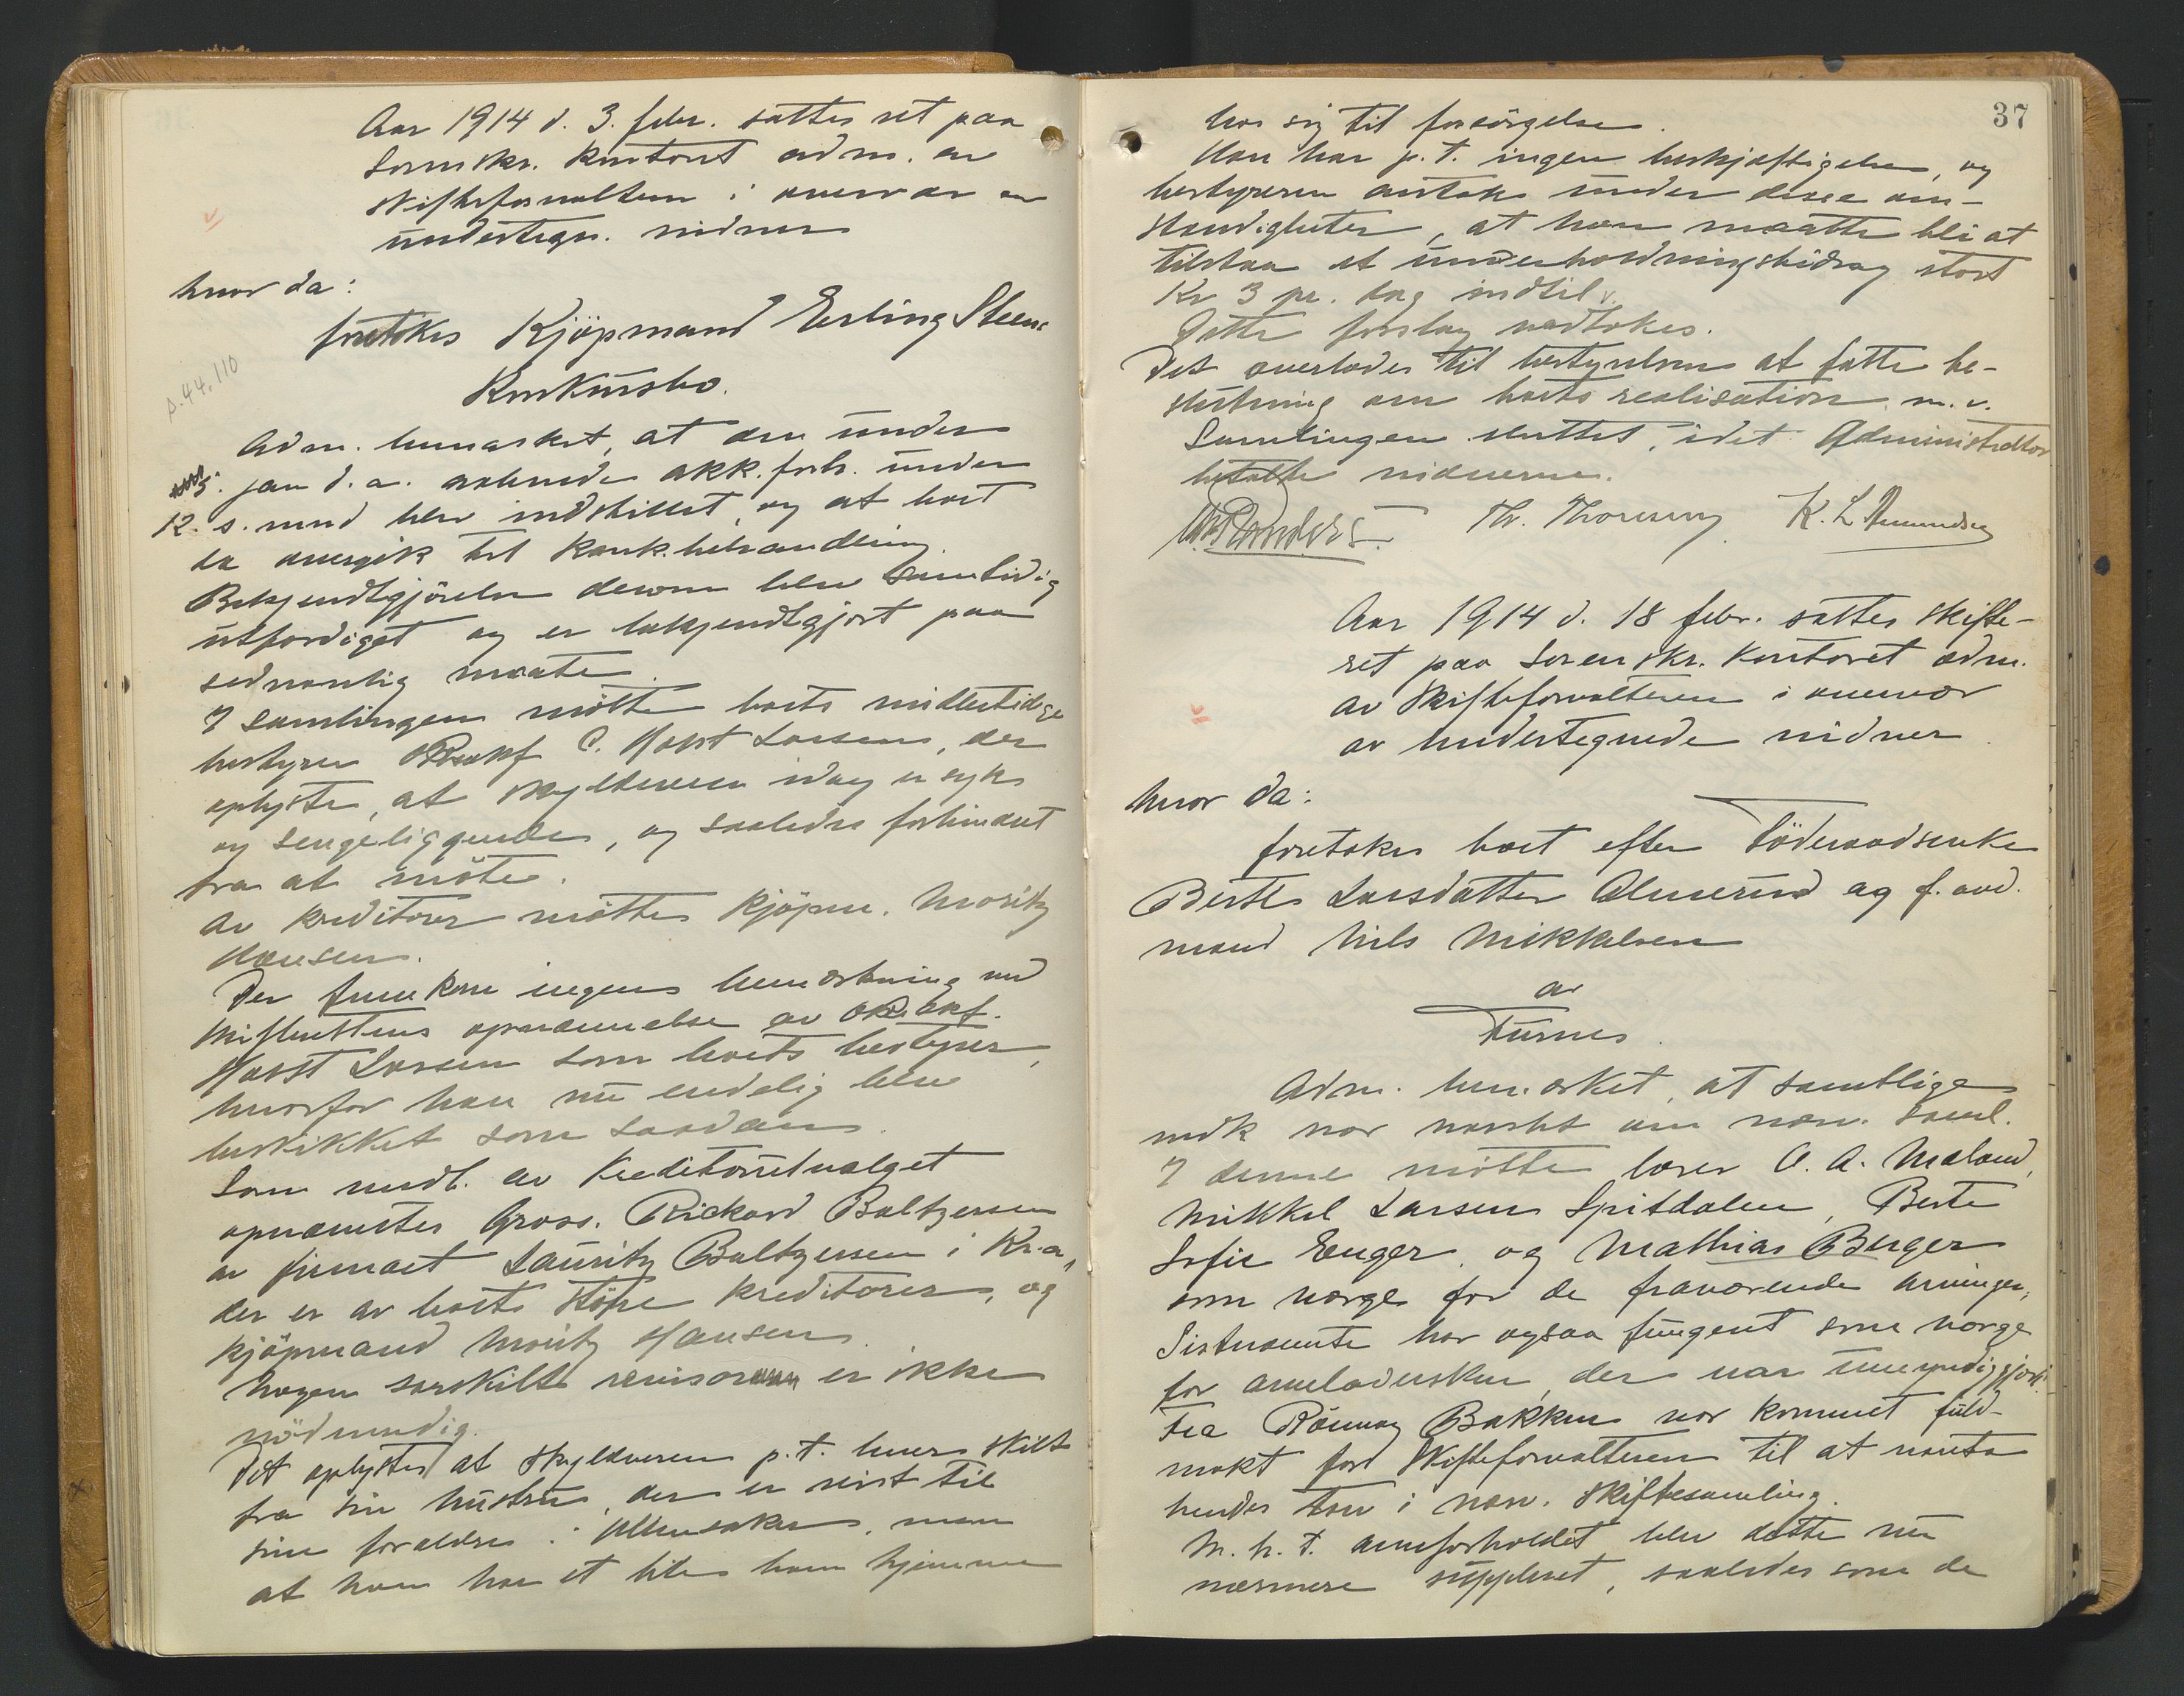 Aar 1914 d. 3. febr. sattes ret paa
Sorenskr. kontoret adm. av
skifteforvalteren i overvær av
undertegn. vidner
hvor da:
foretokes Kjöpmand Erling Steens
Konkursbo.
p. 44. 110
Adm. bemerket, at den under
5. jan d. a. aabnede akk.forh. under
12. s. mnd blev indstillet, og at boet
da overgik til konk.behandling.
Bekjendtgjörelse derom blev samtidig
utferdiget og er bekjendtgjort paa
sedvanlig maate.
I samlingen mötte boets midlertidige
bestyrer O.R.sakf C. Horst Larsen, der
oplyste, at skyldneren idag er syk
og sengeliggende, og saaledes forhindret
fra at möte.
Av kreditorer mötte kjöpm. Moritz
Hansen.
Der fremkom ingen bemerkning ved
skifterettens opnævnelse av O.R.sakf.
Horst Larsen som boets bestyrer,
hvorfor han nu endelig blev
beskikket som saadan.
Som medl. av kreditorutvalget
opnævntes Gross. Rickard Baltzersen
av firmaet Lauritz Baltzersen i Kr.a,
der er av boets större kreditorer, og
kjöpmand Moritz Hansen.
Nogen særskilt revisor er ikke
nödvendig.
Det oplystes at skyldneren p.t. lever skilt
fra sin hustru, der er reist til
sine forældre i Ullensaker, men
at han har et litet barn hjemme
37
hos sig til forsörgelse.
Han har p.t. ingen beskjæftigelse, og
bestyreren antok under disse om-
stændigheter, at han maatte bli at
tilstaa et underholdningsbidrag stort
Kr 3 pr. dag indtil v.
Dette forslag vedtokes.
Det overlodes til bestyrelsen at fatte be-
slutning om boets realisation m.v.
Samlingen sluttet, idet Administrator
betalte vidnerne.
Th. Thoresen K. L. Amundsen
Aar 1914 d. 18 febr. sattes skifte-
ret paa Sorenskr. kontoret adm.
av Skifteforvalteren i overvær
av undertegnede vidner.
hvor da:
foretokes boet efter Föderaadsenke
Berthe Larsdatter Almerud og f. avd.
mand Nils Mikkelsen
av
Furnes.
Adm. bemerket, at samtlige
vedk var varslet om nærv. saml.
I denne mötte lærer O. A. Mæland,
Mikkel Larsen Spitdalen, Berte
Sofie Enger og Mathias Berger
som verge for de fraværende arvinger.
Sistnævnte har ogsaa fungert som verge
for arveladersken, der var umyndiggjort.
Fra Rönnaug Bakken var kommet fuld-
makt for Skifteforvalteren til at vareta
hendes tarv i nærv. skiftesamling.
M. h. t. arveforholdet blev dette nu
nærmere suppleret, saaledes som de